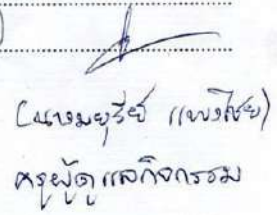 (นางมยุรีย์ แพงไชย)
ครูผู้ดูแลกิจกรรม